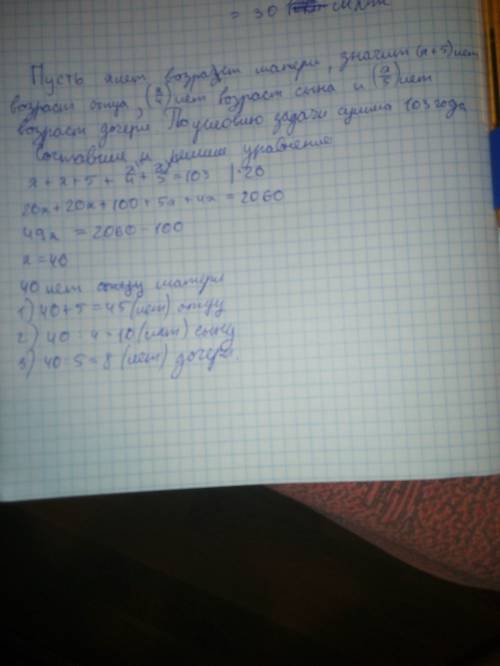 = 30 мин
Пусть x лет возраст матери, значит (x+5) лет
возраст отца, (x/4) лет возраст сына и (x/5) лет
возраст дочери По условию задачи сумма 103 года
Составим и решим уравнение
x + x + 5 + x/4 + x/5 = 103 | · 20
20x + 20x + 100 + 5x + 4x = 2060
49x = 2060 - 100
x = 40
40 лет матери
1) 40 + 5 = 45 (лет) отцу
2) 40 : 4 = 10 (лет) сыну
3) 40 : 5 = 8 (лет) дочери.